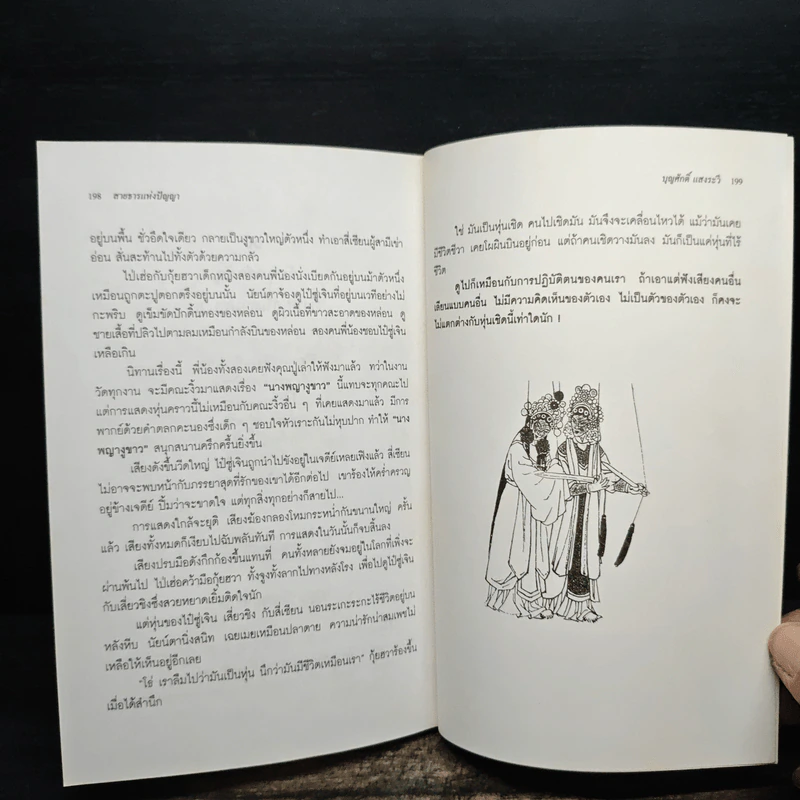 198 สายธารแห่งปัญญา
อยู่บนพื้น ชั่วอึดใจเดียว กลายเป็นงูขาวใหญ่ตัวหนึ่ง ทำเอาสี่เซียนผู้สามีเข่า
อ่อน สั่นสะท้านไปทั้งตัวด้วยความกลัว
ไป่เฮ่อกับกุ้ยฮวาเด็กหญิงสองคนพี่น้องนั่งเบียดกันอยู่บนม้าตัวหนึ่ง
เหมือนถูกตะปูตอกตรึงอยู่บนนั้น นัยน์ตาจ้องดูไป๋ซู่เจินที่อยู่บนเวทีอย่างไม่
กะพริบ ดูเข็มขัดปักดิ้นทองของหล่อน ดูผิวเนื้อที่ขาวสะอาดของหล่อน ดู
ชายเสื้อที่ปลิวไปตามลมเหมือนกำลังบินของหล่อน สองคนพี่น้องชอบไป๋ซู่เจิน
เหลือเกิน
นิทานเรื่องนี้ พี่น้องทั้งสองเคยฟังคุณปู่เล่าให้ฟังมาแล้ว ทว่าในงาน
วัดทุกงาน จะมีคณะงิ้วมาแสดงเรื่อง "นางพญางูขาว" นี้แทบจะทุกคณะไป
แต่การแสดงหุ่นคราวนี้ไม่เหมือนกับคณะงิ้วอื่น ๆ ที่เคยแสดงมาแล้ว มีการ
พากย์ด้วยคำตลกคะนองซึ่งเด็ก ๆ ชอบใจหัวเราะกันไม่หุบปาก ทำให้ "นาง
พญางูขาว" สนุกสนานครึกครื้นยิ่งขึ้น
เสียงดังขึ้นวีดใหญ่ ไป๋ซู่เจินถูกนำไปขังอยู่ในเจดีย์เหลยเฟิงแล้ว สี่เซียน
ไม่อาจจะพบหน้ากับภรรยาสุดที่รักของเขาได้อีกต่อไป เขาร้องไห้คร่ำครวญ
อยู่ข้างเจดีย์ ปิ้มว่าจะขาดใจ แต่ทุกสิ่งทุกอย่างก็สายไป...
การแสดงใกล้จะยุติ เสียงฆ้องกลองโหมกระหน่ำกันขนานใหญ่ ครั้น
แล้ว เสียงทั้งหมดก็เงียบไปฉับพลันทันที การแสดงในวันนั้นก็จบสิ้นลง
เสียงปรบมือดังกึกก้องขึ้นแทนที่ คนทั้งหลายยังจมอยู่ในโลกที่เพิ่งจะ
ผ่านพ้นไป ไป่เฮ่อคว้ามือกุ้ยฮวา ทั้งจูงทั้งลากไปทางหลังโรง เพื่อไปดูไป๋ซู่เจิน
กับเสี่ยวชิงซึ่งสวยหยาดเยิ้มติดใจนัก
แต่หุ่นของไป๋ซู่เจิน เสี่ยวชิง กับสี่เซียน นอนระเกะระกะไร้ชีวิตอยู่บน
หลังหีบ นัยน์ตานิ่งสนิท เฉยเมยเหมือนปลาตาย ความน่ารักน่าสมเพชไม่
เหลือให้เห็นอยู่อีกเลย
"โธ่ เราลืมไปว่ามันเป็นหุ่น นึกว่ามันมีชีวิตเหมือนเรา" กุ้ยฮวาร้องขึ้น
เมื่อได้สำนึก
บุญศักดิ์ แสงระวี 199
ใช่ มันเป็นหุ่นเชิด คนไปเชิดมัน มันจึงจะเคลื่อนไหวได้ แม้ว่ามันเคย
มีชีวิตชีวา เคยโผผินบินอยู่ก่อน แต่ถ้าคนเชิดวางมันลง มันก็เป็นแค่หุ่นที่ไร้
ชีวิต
ดูไปก็เหมือนกับการปฏิบัติตนของคนเรา ถ้าเอาแต่ฟังเสียงคนอื่น
เลียนแบบคนอื่น ไม่มีความคิดเห็นของตัวเอง ไม่เป็นตัวของตัวเอง ก็คงจะ
ไม่แตกต่างกับหุ่นเชิดนี้เท่าใดนัก !